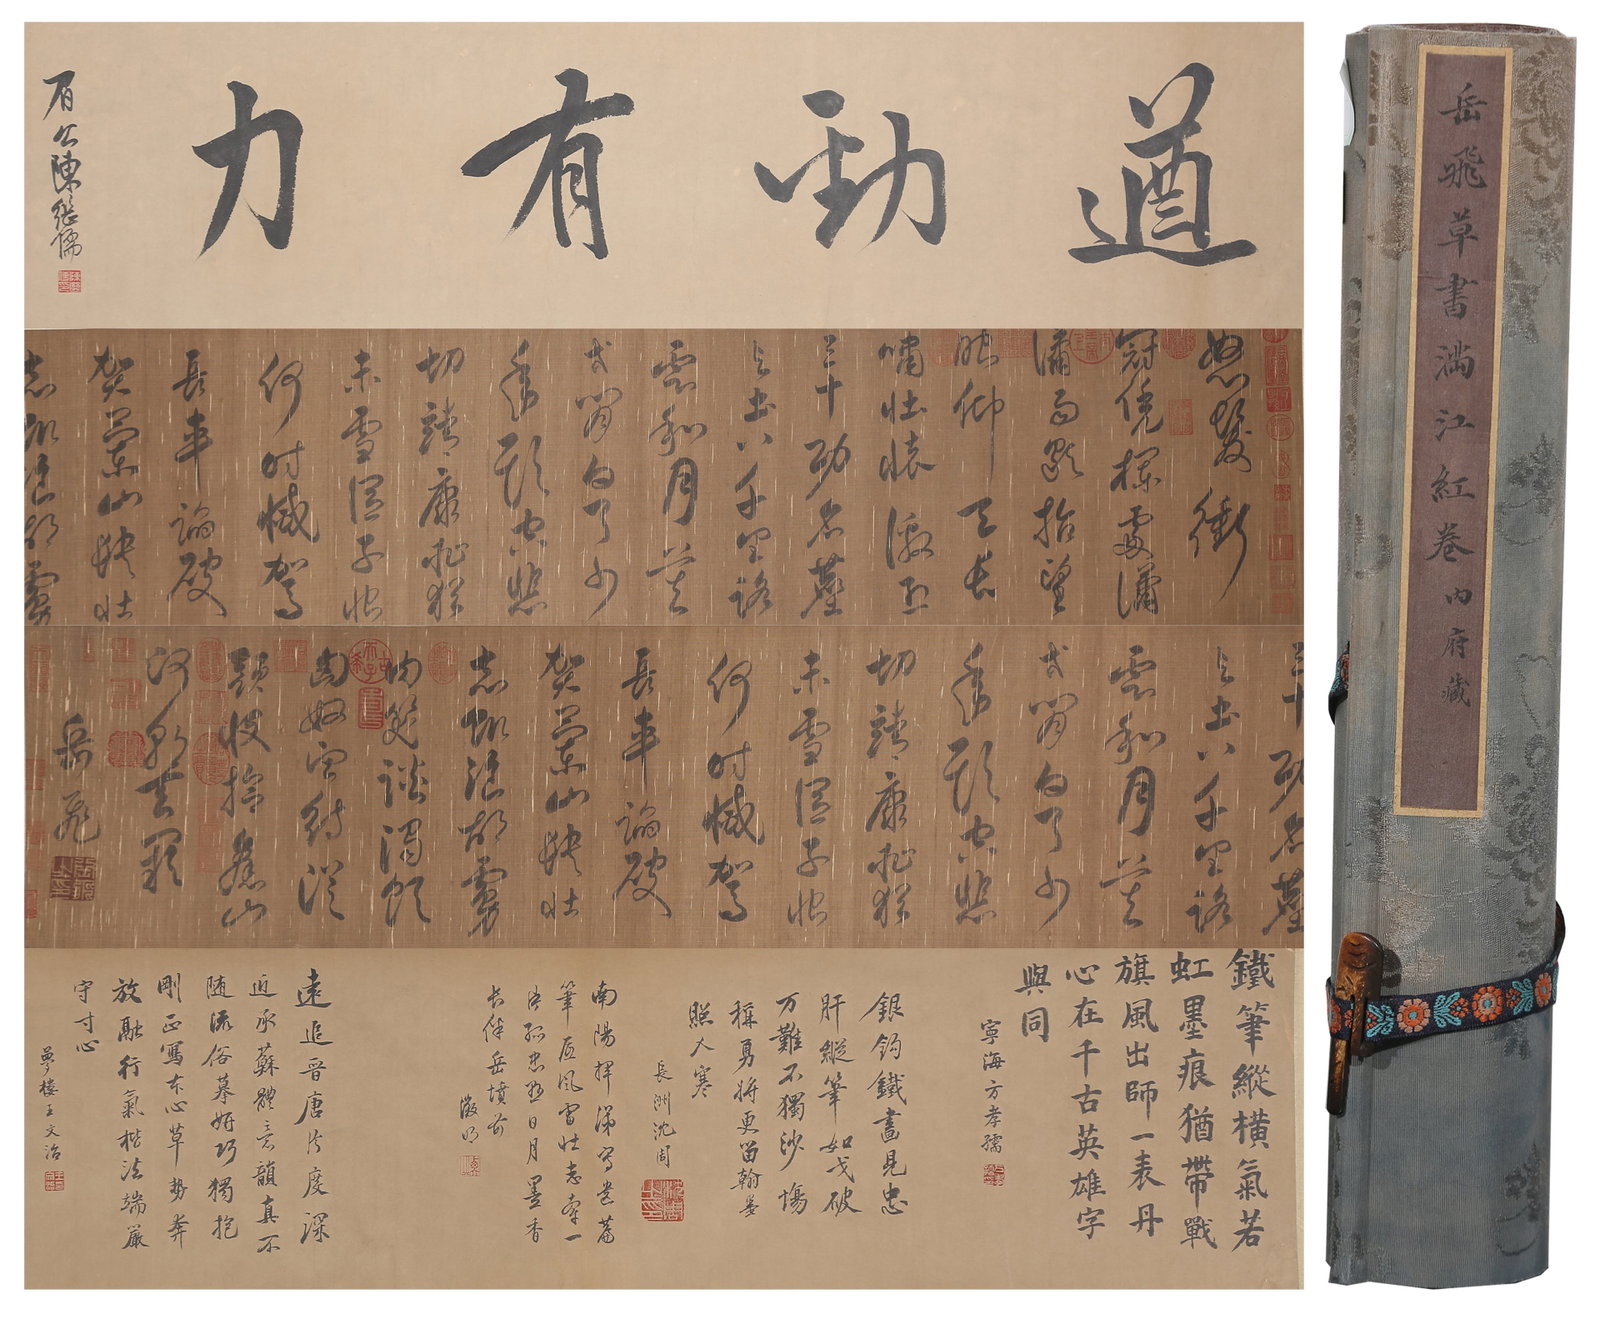 遒勁有力
眉公陳繼儒
怒髮衝
冠凭欄處瀟
瀟雨歇抬望
眼仰天長
嘯壯懷激烈
三十功名塵
與土八千里路
雲和月莫
等閒白了少
年頭空悲
切靖康恥猶
未雪臣子恨
何時憾駕
長車踏破
賀蘭山缺壯
志飢餐胡虜
三十功名塵
與土八千里路
雲和月莫
等閒白了少
年頭空悲
切靖康恥猶
未雪臣子恨
何時憾駕
長車踏破
賀蘭山缺壯
志飢餐胡虜
肉笑談渴飲
匈奴血待從
頭收拾舊山
河朝天闕
岳飛
鐵筆縱橫氣若
虹墨痕猶帶戰
旗風出師一表丹
心在千古英雄字
與同
寧海方孝孺
銀鈎鐵畫見忠
肝縱筆如戈破
万難不獨沙場
稱勇將更留翰墨
照人寒
長洲沈周
南陽揮涕寫篇
筆底風雷壯志牽一
片孤忠照日月墨香
長伴岳墳前
徵明
遠追晉唐法度深
近承蘇體意韻真不
隨流俗慕妍巧獨抱
剛正寫本心草勢奔
放融行氣楷法端嚴
守寸心
夢樓王文治
岳飛草書滿江紅卷 內府藏